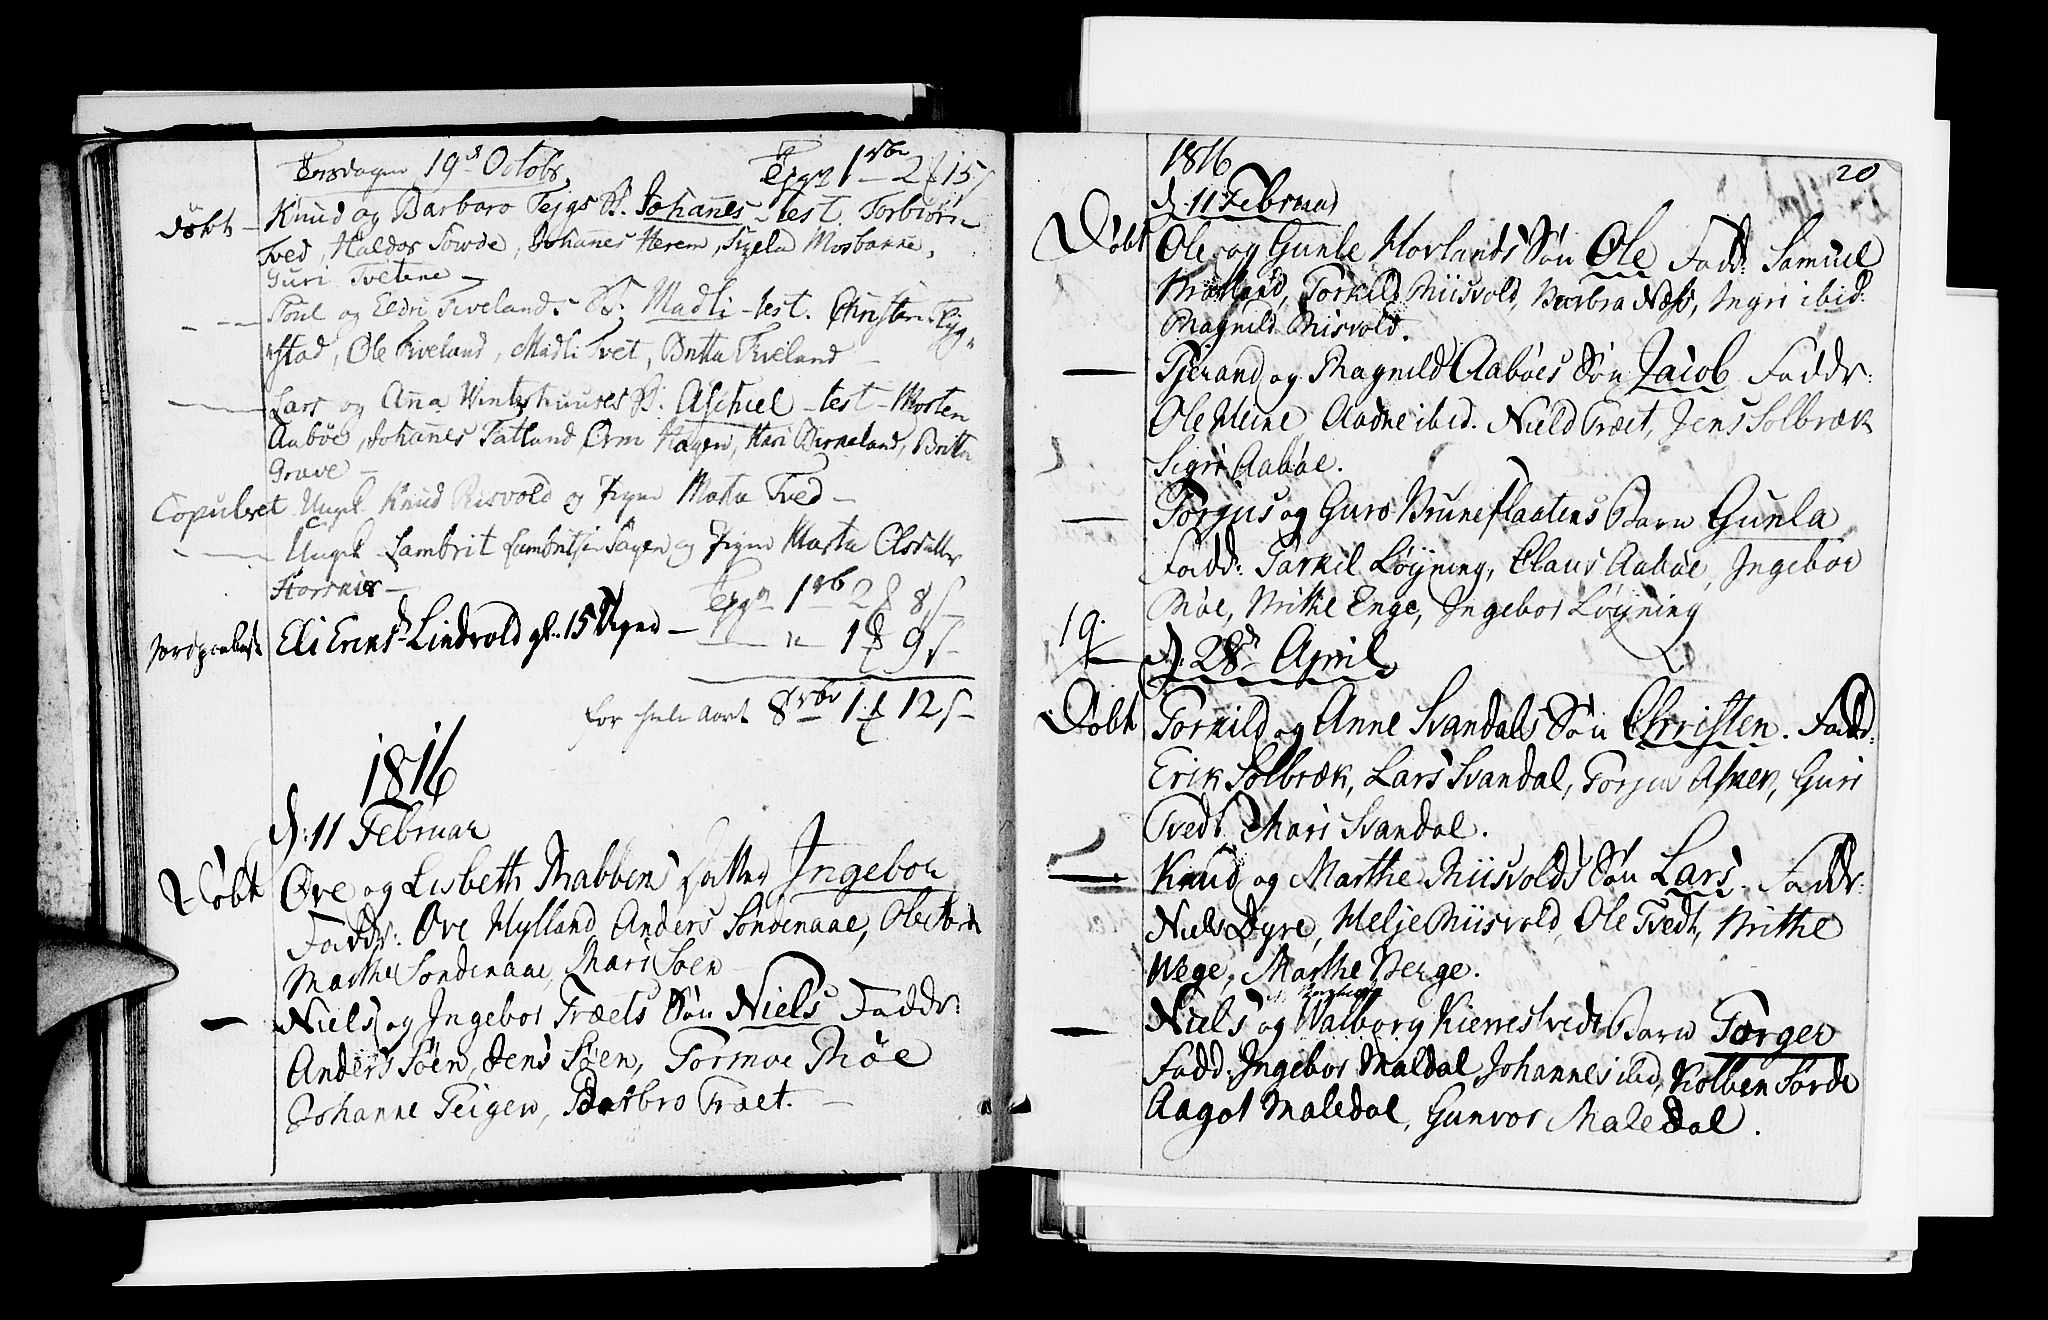 Torsdagen 19d Octobr.
Døbt Knud og Barbaro Tejgs B. Johannes test Torbiørn
Tved, Haldor Sowde, Johannes Herem, Sizela Mosbanne,
Guri Tvetene
Poul og Eldri Tivelands B. Madli test. Christen
stad, Ole Tiveland, Madli Tvet, Britta Tiveland
Lars og Anna Winterhuuses B. test Morten
Aabøe, Johannes Tatland, Orm Hagen, Kari Birkeland, Britta
Grave
Copuleret Ungk. Knud Risvold og Pigen Marta Tved
Ungk. Lambrit og Pigen Marta Olsdatter
1 rb 2 8 s
Eli Erens Lindvold gl. 15 Uger 1 9 s
for hele Aaret 8 rbr 1 12 s
1816
d: 11 Februar
Døbt Ove og Lisbeth Rabbens Datter Ingebor
Faddr: Ove Hylland, Anders Søndenaae,
Marthe Søndenaae, Mari Søen
Niels og Ingebor Træets Søn Niels Faddr:
Anders Søen, Jens Søen, Tormoe Røe
Johanne Teigen, Barbro Træt.
1816
20
d. 11 Februar
Døbt Ole og Gunle Hovlands Søn Ole Fadd: Samuel
Torkild Riisvold, Barbra Næss, Ingri ibid:
Magnild Risvold.
Tjerand og Magnild Aabøes Søn Jacob Faddr:
Ole Heine Aadne ibid. Nield Træet, Jens Solbræk
Sigri Aabøe.
Torjus og Guro Bruneflaatens Barn Gunla
Fadd: Tarkil Løyning, Claus Aabøe, Ingebor
Røe, Brithe Enge, Ingebor Løyning
19.
d: 28d April
Døbt Torkild og Anne Svandals Søn Christen. Fadd:
Erik Solbræk, Lars Svandal, Torjus Asker, Guri
Tvedt, Mari Svandal.
Knud og Marthe Riisvolds Søn Lars. Faddr:
Niels Dyre, Helje Riisvold, Ole Tvedt, Brithe
Hege, Marthe Berge.
Niels og Walborg Kierrestvedt Barn Torger
Fadd. Ingebor Maldal Johannes ibid, Kolben Sørde
Aagot Maledal, Gunvor Maledal.